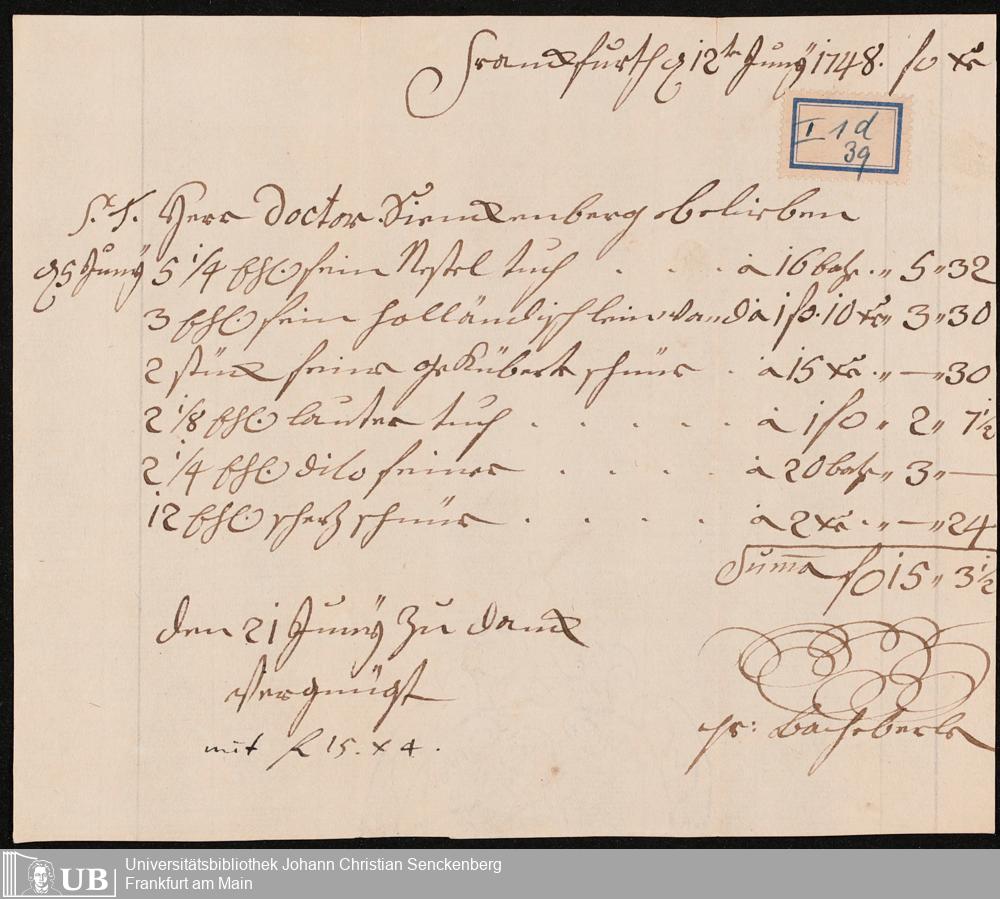 Franckfurth d 12tn Junÿ 1748. fl xr
I 1 d
39
S. T. Herr Doctor Sienckenberg belieben
d 5 Junÿ 5 1/4 Ehl. fein Nestel tuch . . . à 16 batz. " 5 " 32
3 Ehl. fein holländisch leinwand à 1 fl. 10 xr " 3 " 30
2 stück feine geKüberte schnür . à 15 xr. " — " 30
2 1/8 Ehl. lauter tuch . . . . . à 1 fl " 2 " 7 1/2
2 1/4 Ehl. dito feiner . . . . à 20 batz " 3 " —
12 Ehl. schnür . . . . à 2 xr. " — " 24
Summa fl 15 " 3 1/2
den 21 Junÿ zu danck
Vergnügt
mit fl 15. x 4.
pr:
UB
Universitätsbibliothek Johann Christian Senckenberg
Frankfurt am Main